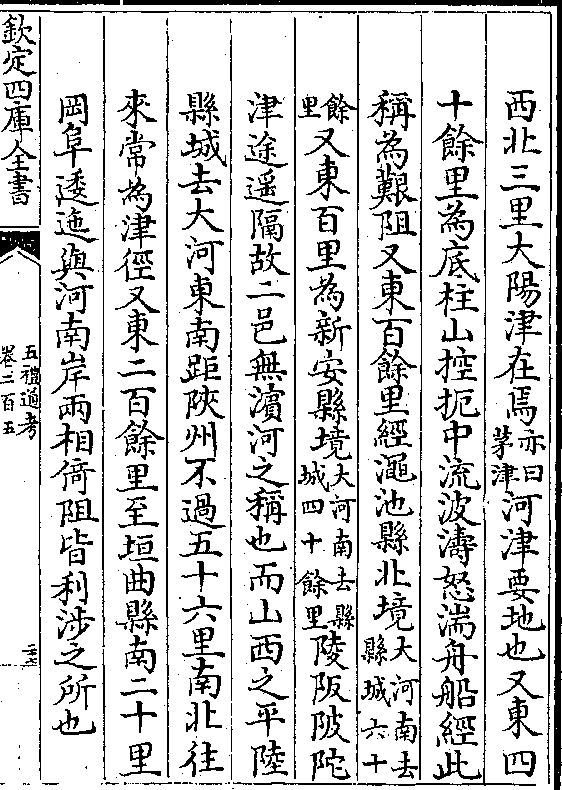 西北三里大陽津在焉亦曰茅津河津要地也又東四
十餘里為底柱山控扼中流波濤怒湍舟船經此
稱為艱阻又東百餘里經澠池縣北境大河南去縣城六十
餘里又東百里為新安縣境大河南去縣城四十餘里陵阪陂陀
津途遥隔故二邑無濵河之稱也而山西之平陸
縣城去大河東南距陜州不過五十六里南北往
來常為津徑又東二百餘里至垣曲縣南二十里
岡阜逶迤與河南岸兩相倚阻皆利涉之所也
欽定四庫全書
五禮通考
卷二百五